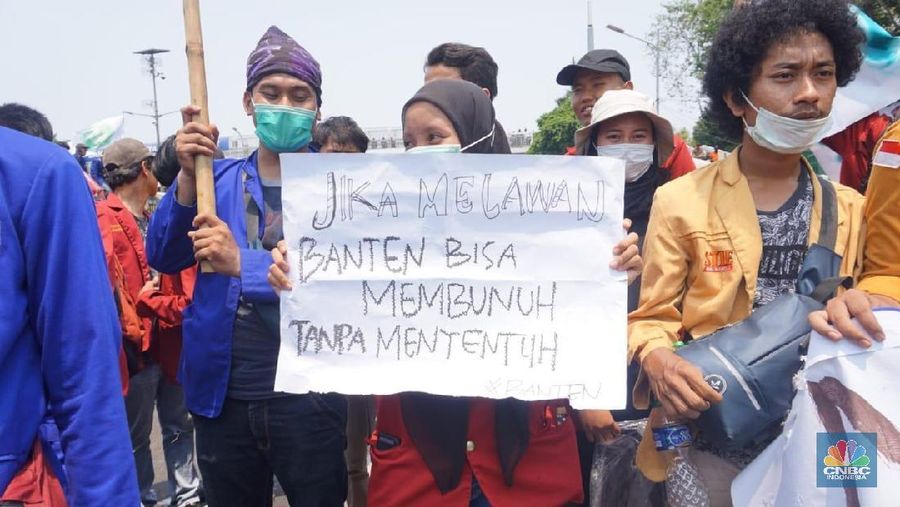 JIKA MELAWAN
BANTEN BISA
MEMBUNUH
TANPA MENTENTUH
#BANTEN
CNBC
INDONESIA